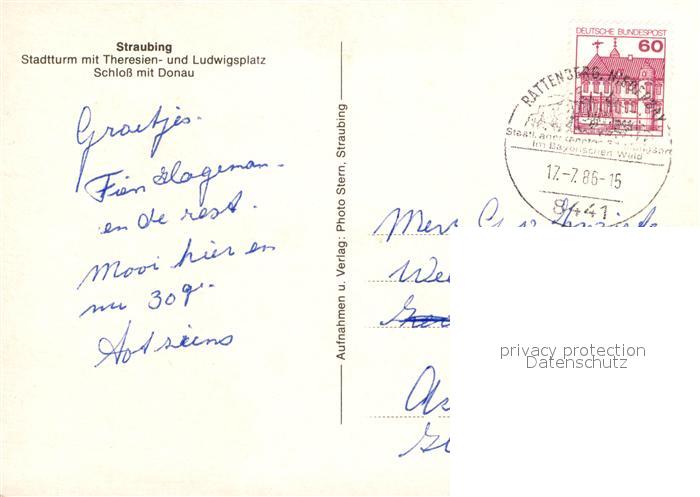 Straubing
Stadtturm mit Theresien- und Ludwigsplatz
Schloß mit Donau
Groetjes.
Fien Hageman
en de rest.
Mooi hier en
nu 30gr.
Tot ziens
Aufnahmen u. Verlag: Photo Stern, Straubing
DEUTSCHE BUNDESPOST
60
RATTENBERG, NIEDERBAY
Staatl. anerkannter Erholungsort
im Bayerischen Wald
17.-7.86-15
8441
privacy protection
Datenschutz